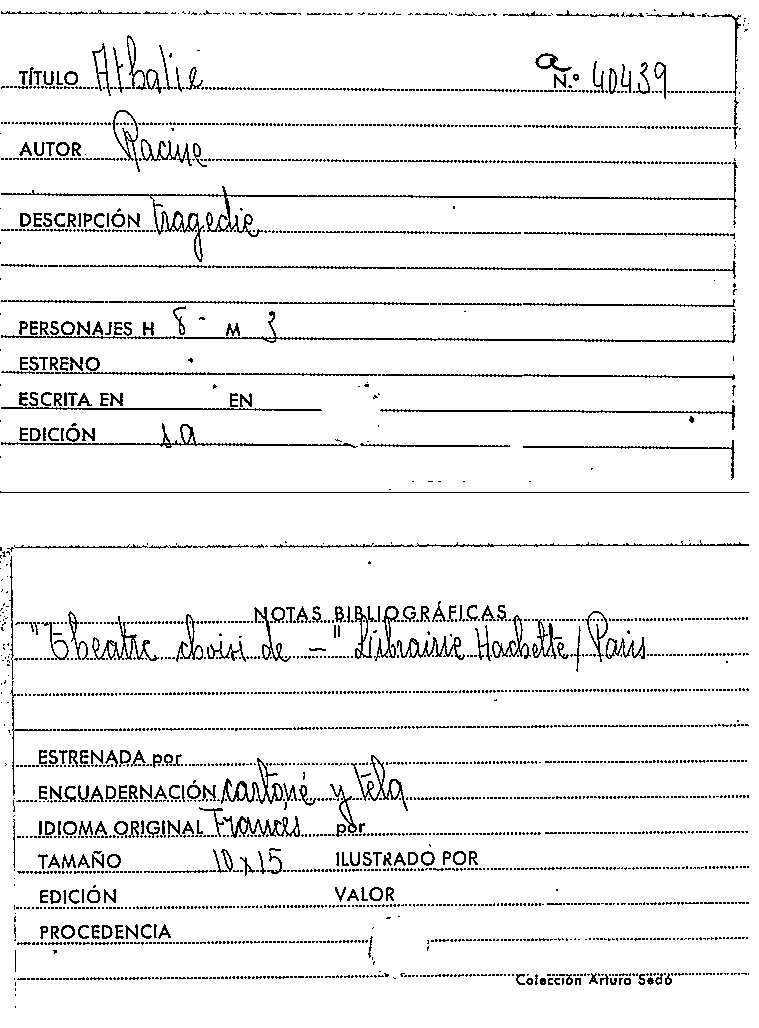 TÍTULO Athalie a N.º 40439
AUTOR Racine
DESCRIPCIÓN tragedie
PERSONAJES H 8 - M 3
ESTRENO
ESCRITA EN EN
EDICIÓN s.a
NOTAS BIBLIOGRÁFICAS
"theatre choisi de - " Librairie Hachette / Paris
ESTRENADA por
ENCUADERNACIÓN cartoné y tela
IDIOMA ORIGINAL Frances por
TAMAÑO 10 x 15 ILUSTRADO POR
EDICIÓN VALOR
PROCEDENCIA
Colección Arturo Sedó